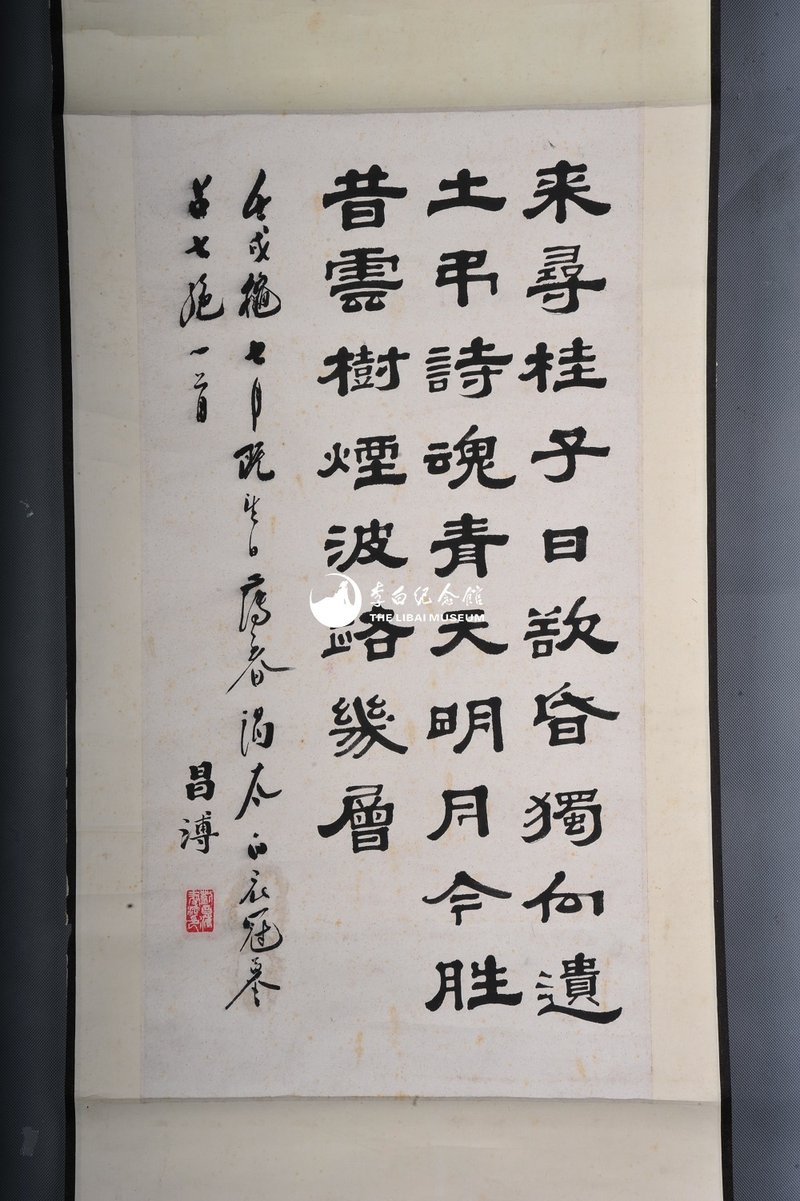 来尋桂子日欲昏獨向遺
土弔詩魂青天明月今胜
昔雲樹煙波路幾層
壬戌穐七月既望日薄暮謁太白衣冠墓
占七绝一首
昌溥
李白纪念馆
THE LIBAI MUSEUM